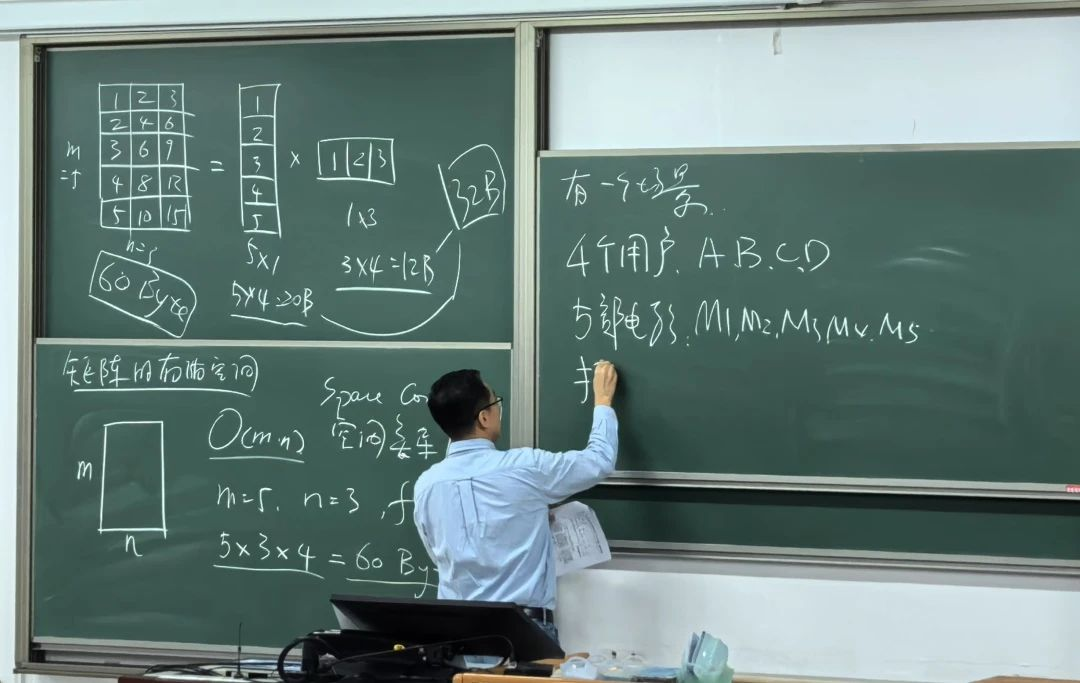 1 2 3
2 4 6
3 6 9
4 8 12
5 10 15
m=5
n=3
60 Byte
=
1
2
3
4
5
5x1
5x4=20B
x
1 2 3
1x3
3x4=12B
32B
矩阵的存储空间
m
n
Space Co
O(m·n)
空间复杂
m=5. n=3 , f
5x3x4 = 60 By
有一个场景..
4个用户. A.B.C.D
5部电影. M1,M2,M3,M4.M5